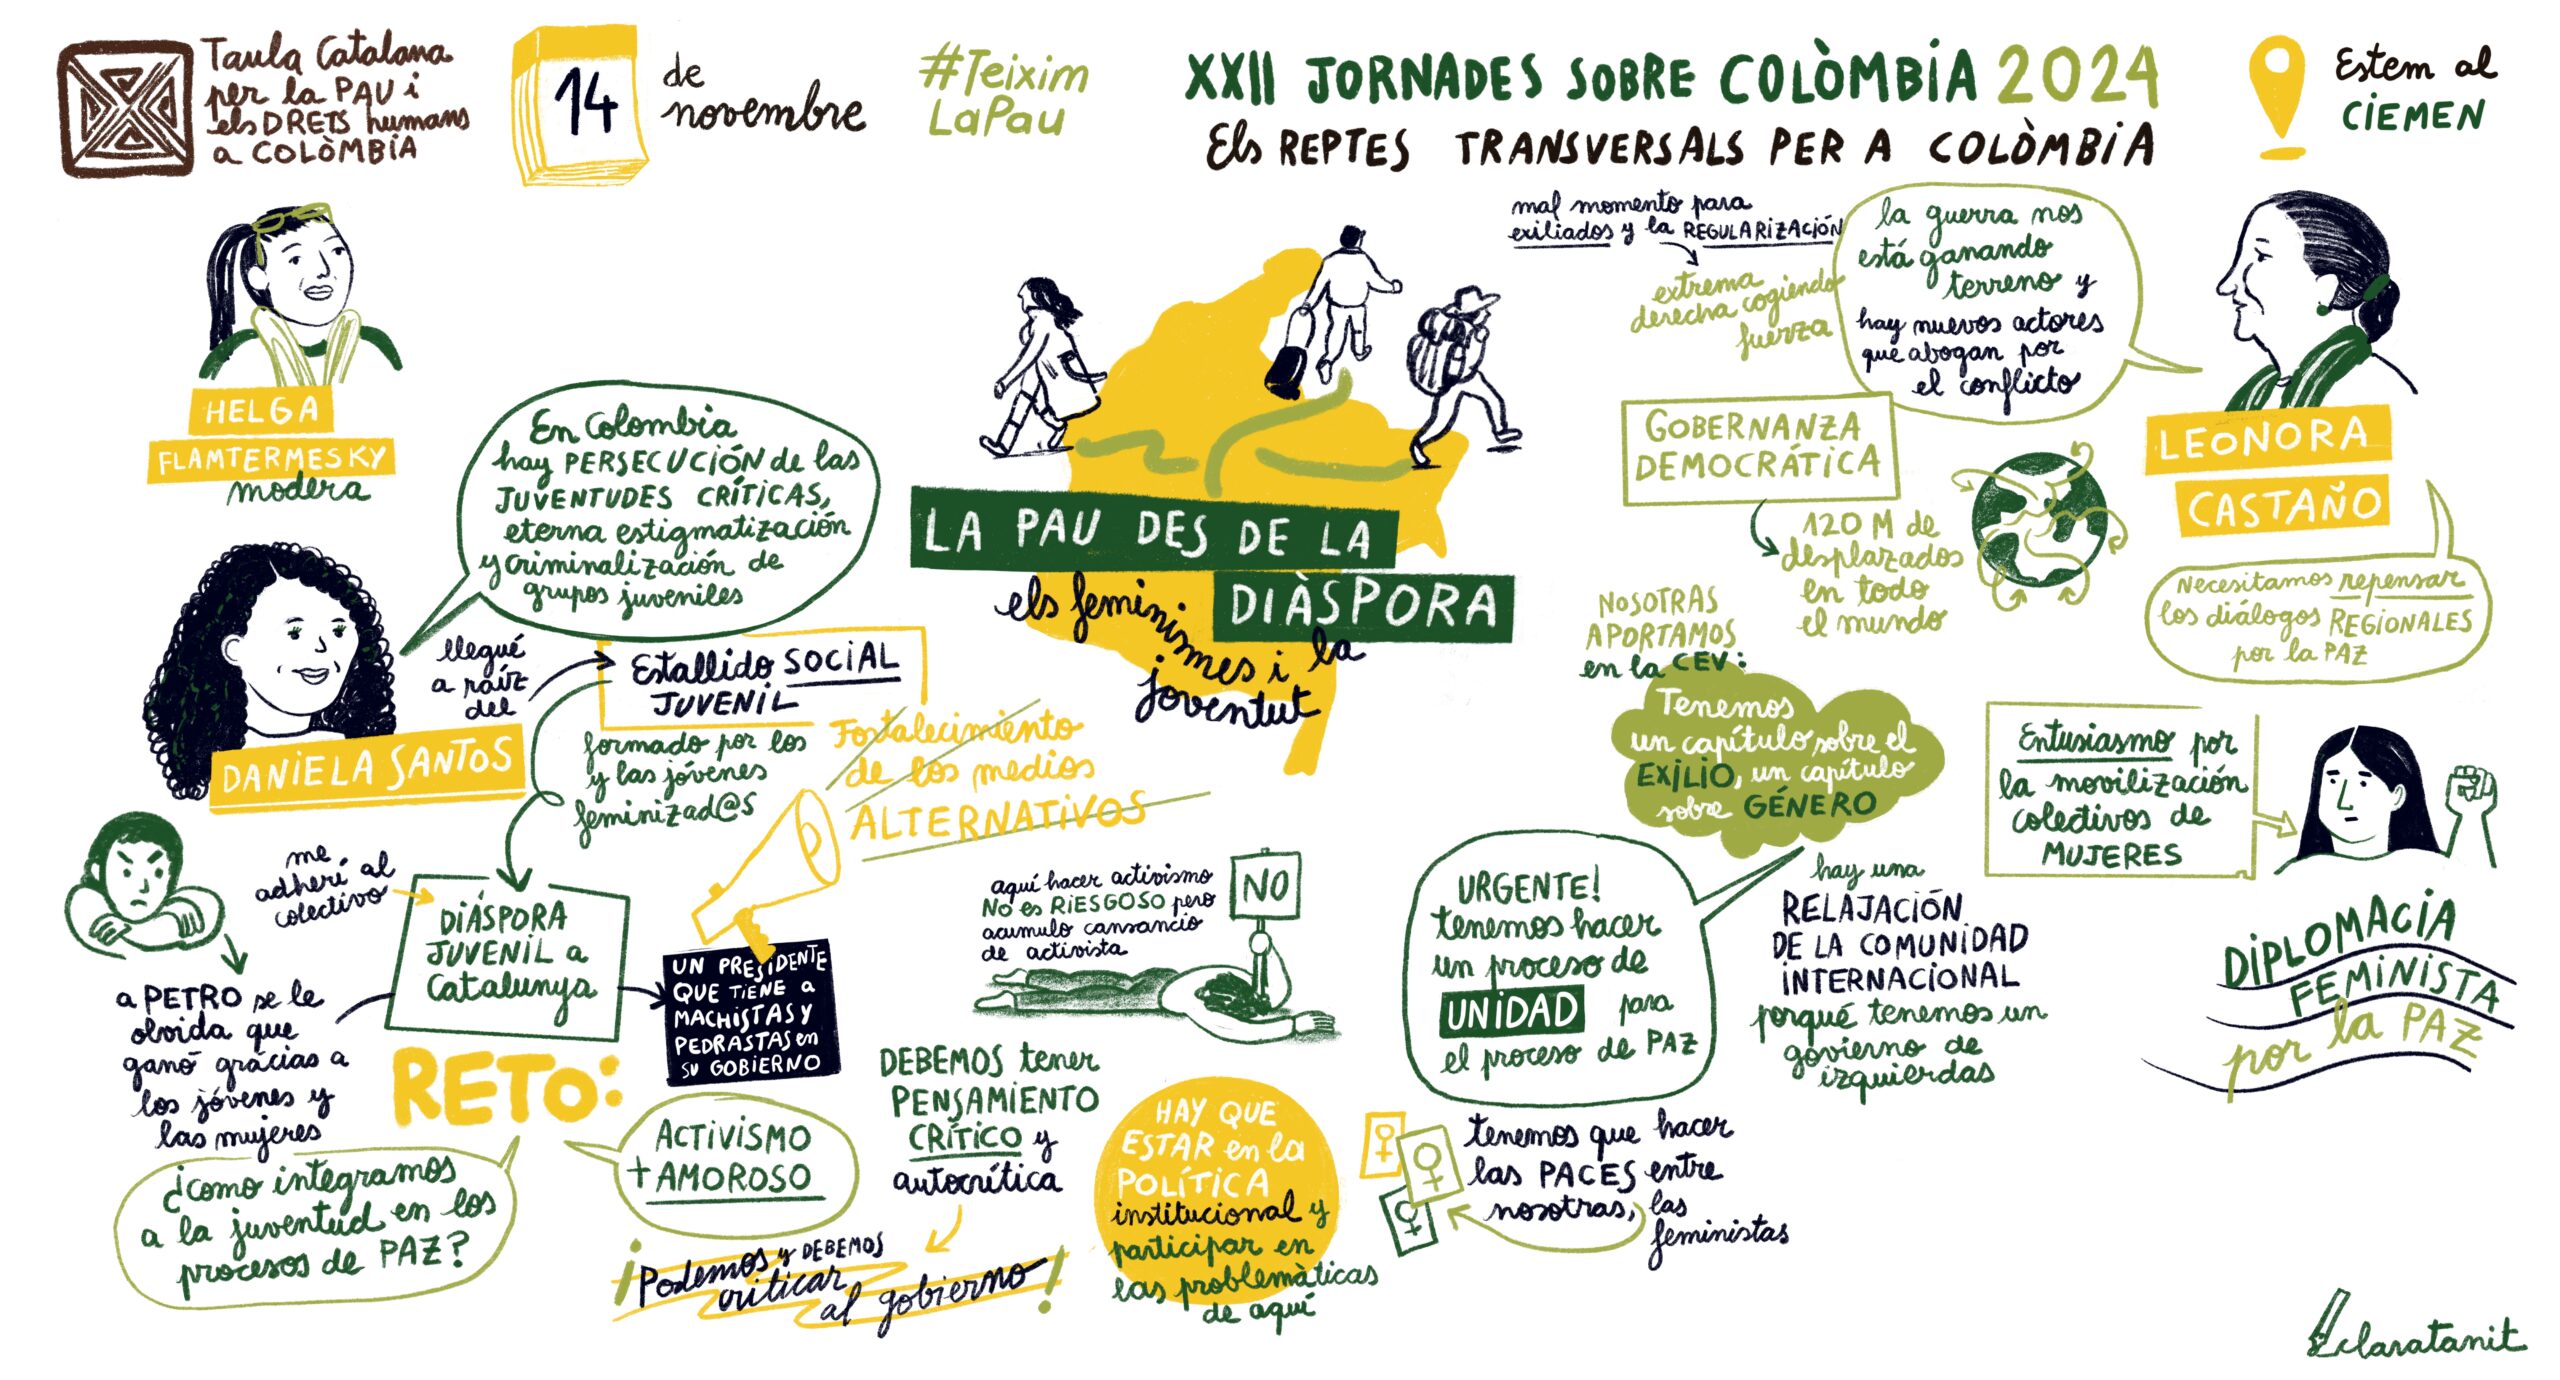 Taula Catalana
per la PAU i
els DRETS humans
a COLÒMBIA
14
de
novembre
#Teixim
LaPau
XXII JORNADES SOBRE COLÒMBIA 2024
Els REPTES TRANSVERSALS PER A COLÒMBIA
Estem al
CIEMEN
HELGA
FLAMTERMESKY
modera
En Colombia
hay PERSECUCIÓN de las
JUVENTUDES CRÍTICAS,
eterna estigmatización
y criminalización de
grupos juveniles
DANIELA SANTOS
llegué
a raíz
del
Estallido SOCIAL
JUVENIL
formado por los
y las jóvenes
feminizad@s
Fortalecimiento
de los medios
ALTERNATIVOS
me
adherí al
colectivo
DIÁSPORA
JUVENIL a
Catalunya
a PETRO se le
olvida que
ganó grácias a
los jóvenes y
las mujeres
UN PRESIDENTE
QUE TIENE A
MACHISTAS Y
PEDRASTAS en
SU GOBIERNO
RETO:
¿como integramos
a la juventud en los
procesos de PAZ?
ACTIVISMO
+ AMOROSO
aquí hacer activismo
NO es RIESGOSO pero
acumulo cansancio
de activista
NO
DEBEMOS tener
PENSAMIENTO
CRÍTICO y
autocrítica
¡Podemos y DEBEMOS
criticar
al gobierno!
LA PAU DES DE LA
DIÀSPORA
els feminismes i la
joventut
HAY QUE
ESTAR en la
POLÍTICA
institucional y
participar en
las problemàticas
de aquí
mal momento para
exiliados y la REGULARIZACIÓN
extrema
derecha cogiendo
fuerza
la guerra nos
está ganando
terreno y
hay nuevos actores
que abogan por
el conflicto
LEONORA
CASTAÑO
GOBERNANZA
DEMOCRÁTICA
120 M de
desplazados
en todo
el mundo
Necesitamos repensar
los diálogos REGIONALES
por la PAZ
NOSOTRAS
APORTAMOS
en la CEV:
Tenemos
un capítulo sobre el
EXILIO, un capítulo
sobre GÉNERO
Entusiasmo por
la movilización
colectivos de
MUJERES
URGENTE!
tenemos hacer
un proceso de
UNIDAD para
el proceso de PAZ
hay una
RELAJACIÓN
DE LA COMUNIDAD
INTERNACIONAL
porqué tenemos un
govierno de
izquierdas
DIPLOMACIA
FEMINISTA
por la PAZ
tenemos que hacer
las PACES entre
nosotras, las
feministas
claratanit